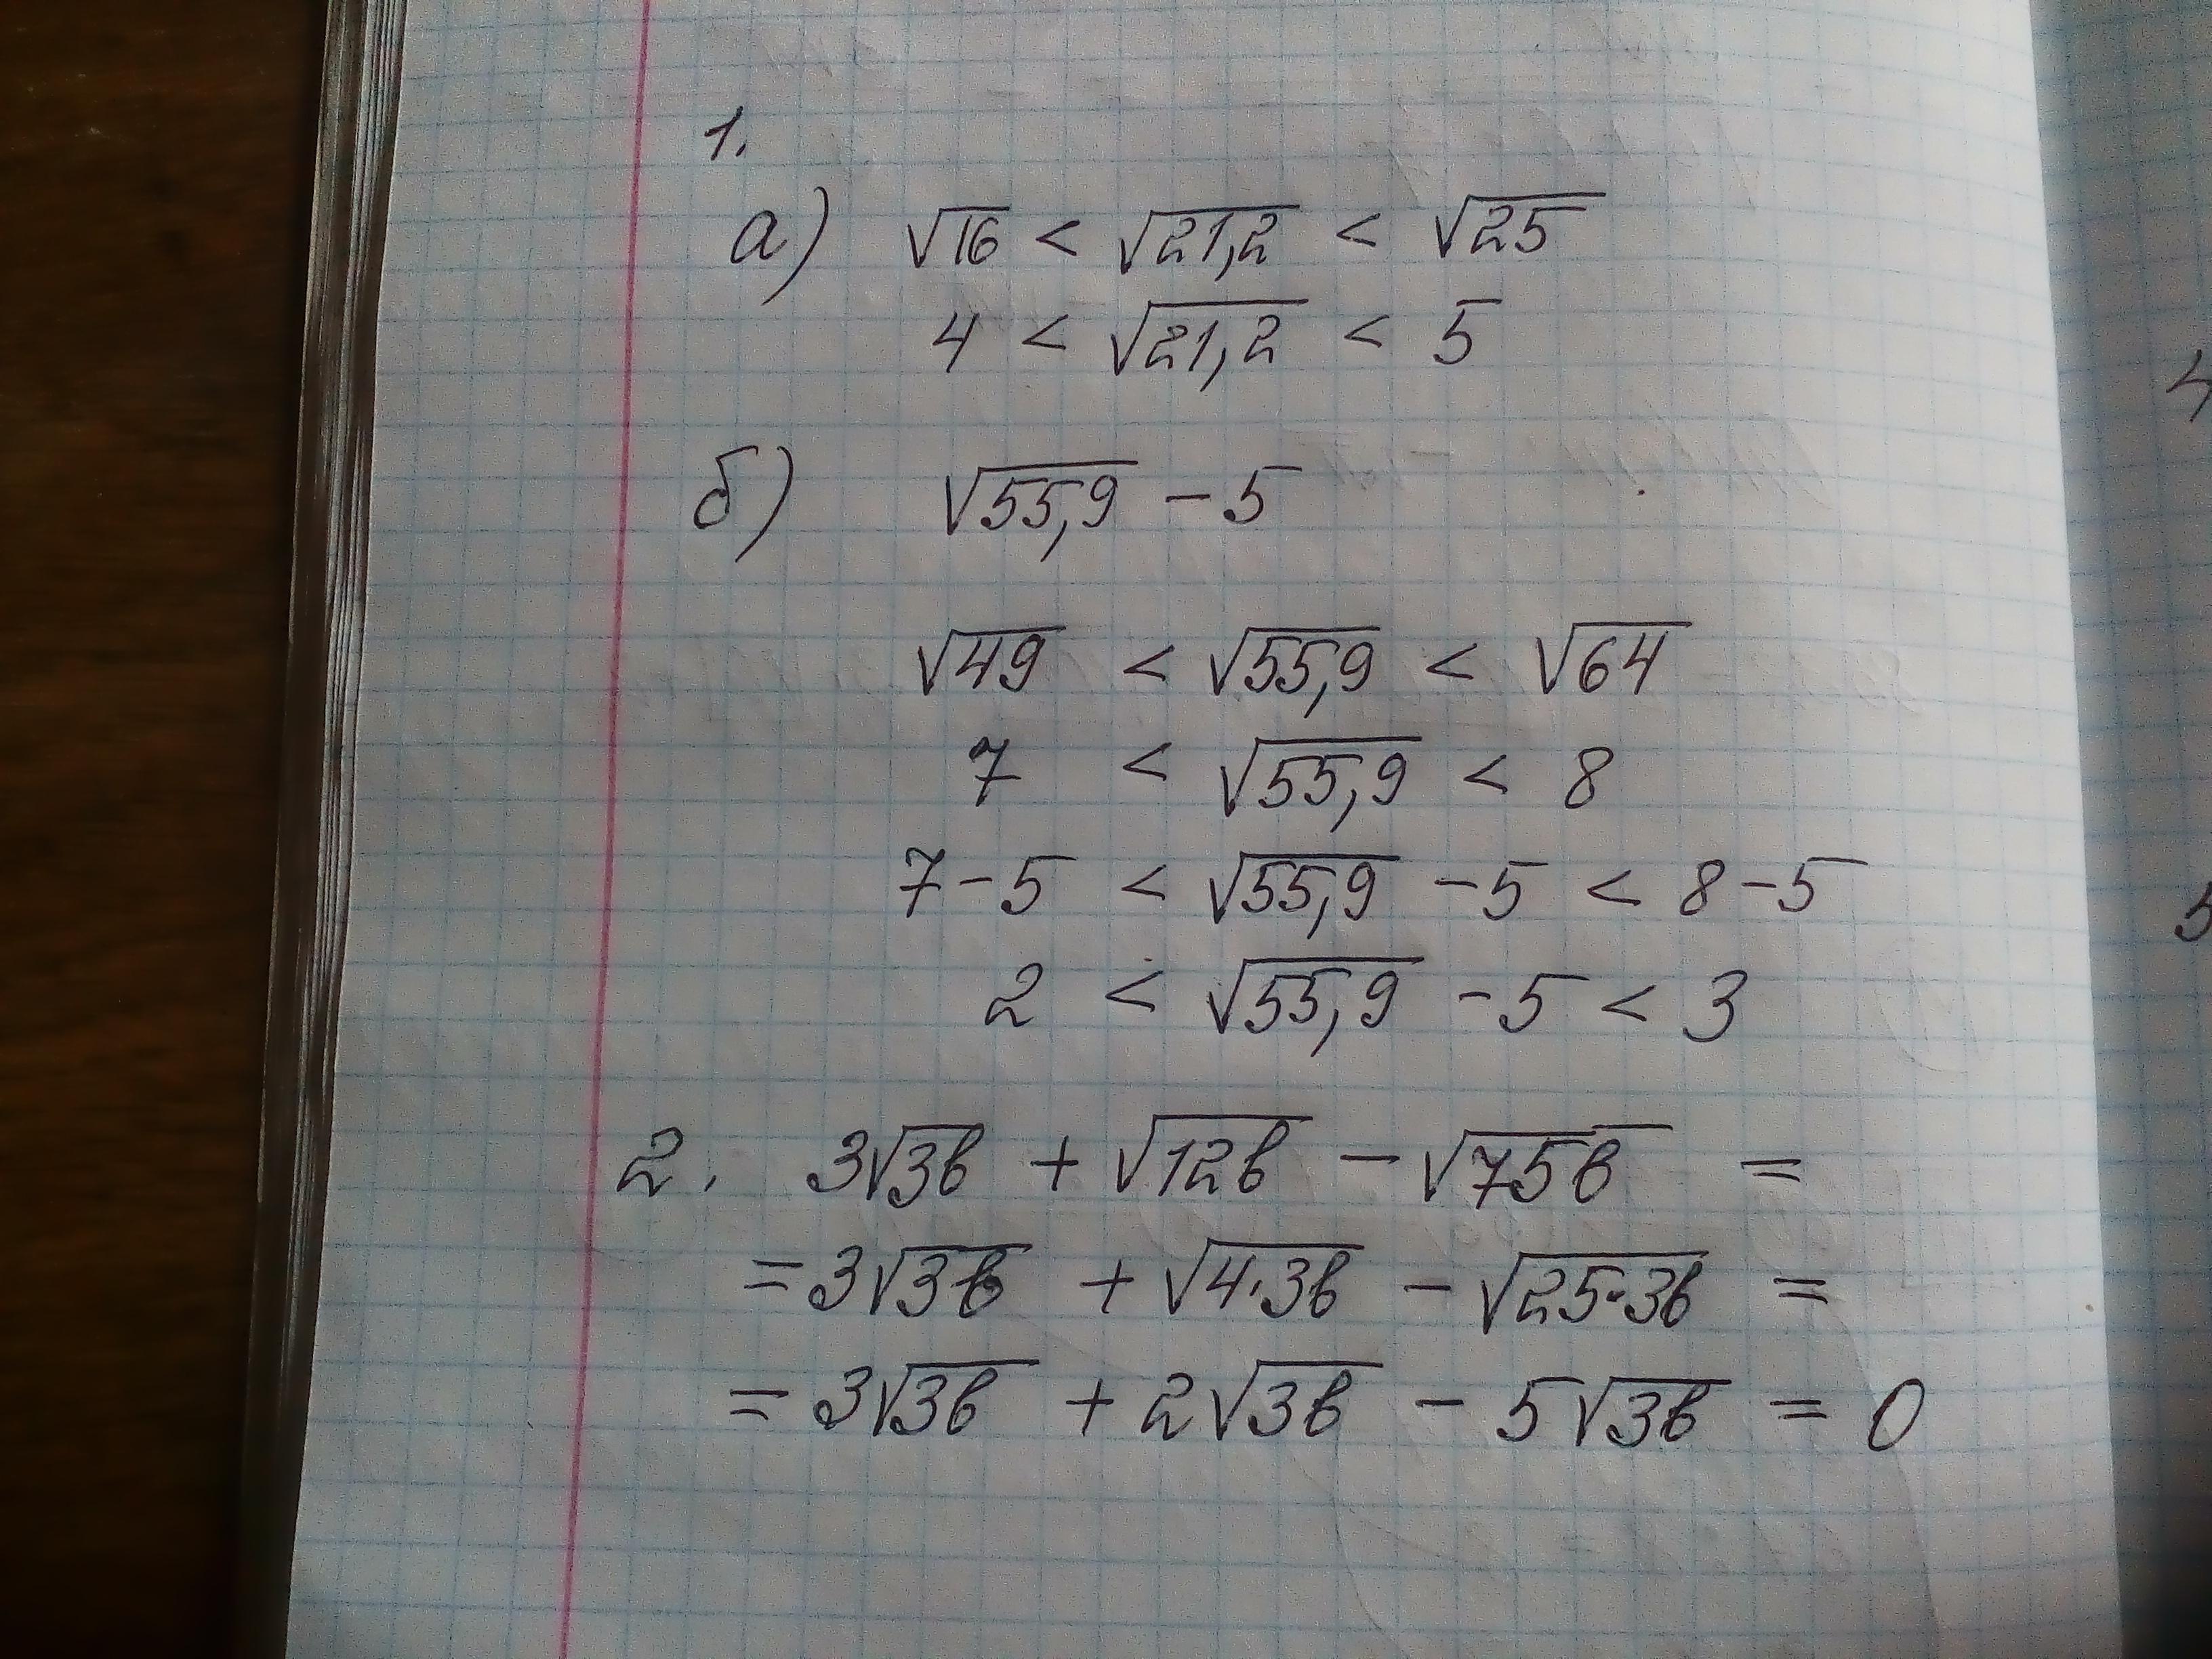 1.
а) √16 < √21,2 < √25
4 < √21,2 < 5
б) √55,9 - 5
√49 < √55,9 < √64
7 < √55,9 < 8
7-5 < √55,9 - 5 < 8-5
2 < √55,9 - 5 < 3
2. 3√3в + √12в - √75в =
= 3√3в + √4·3в - √25·3в =
= 3√3в + 2√3в - 5√3в = 0
4
5